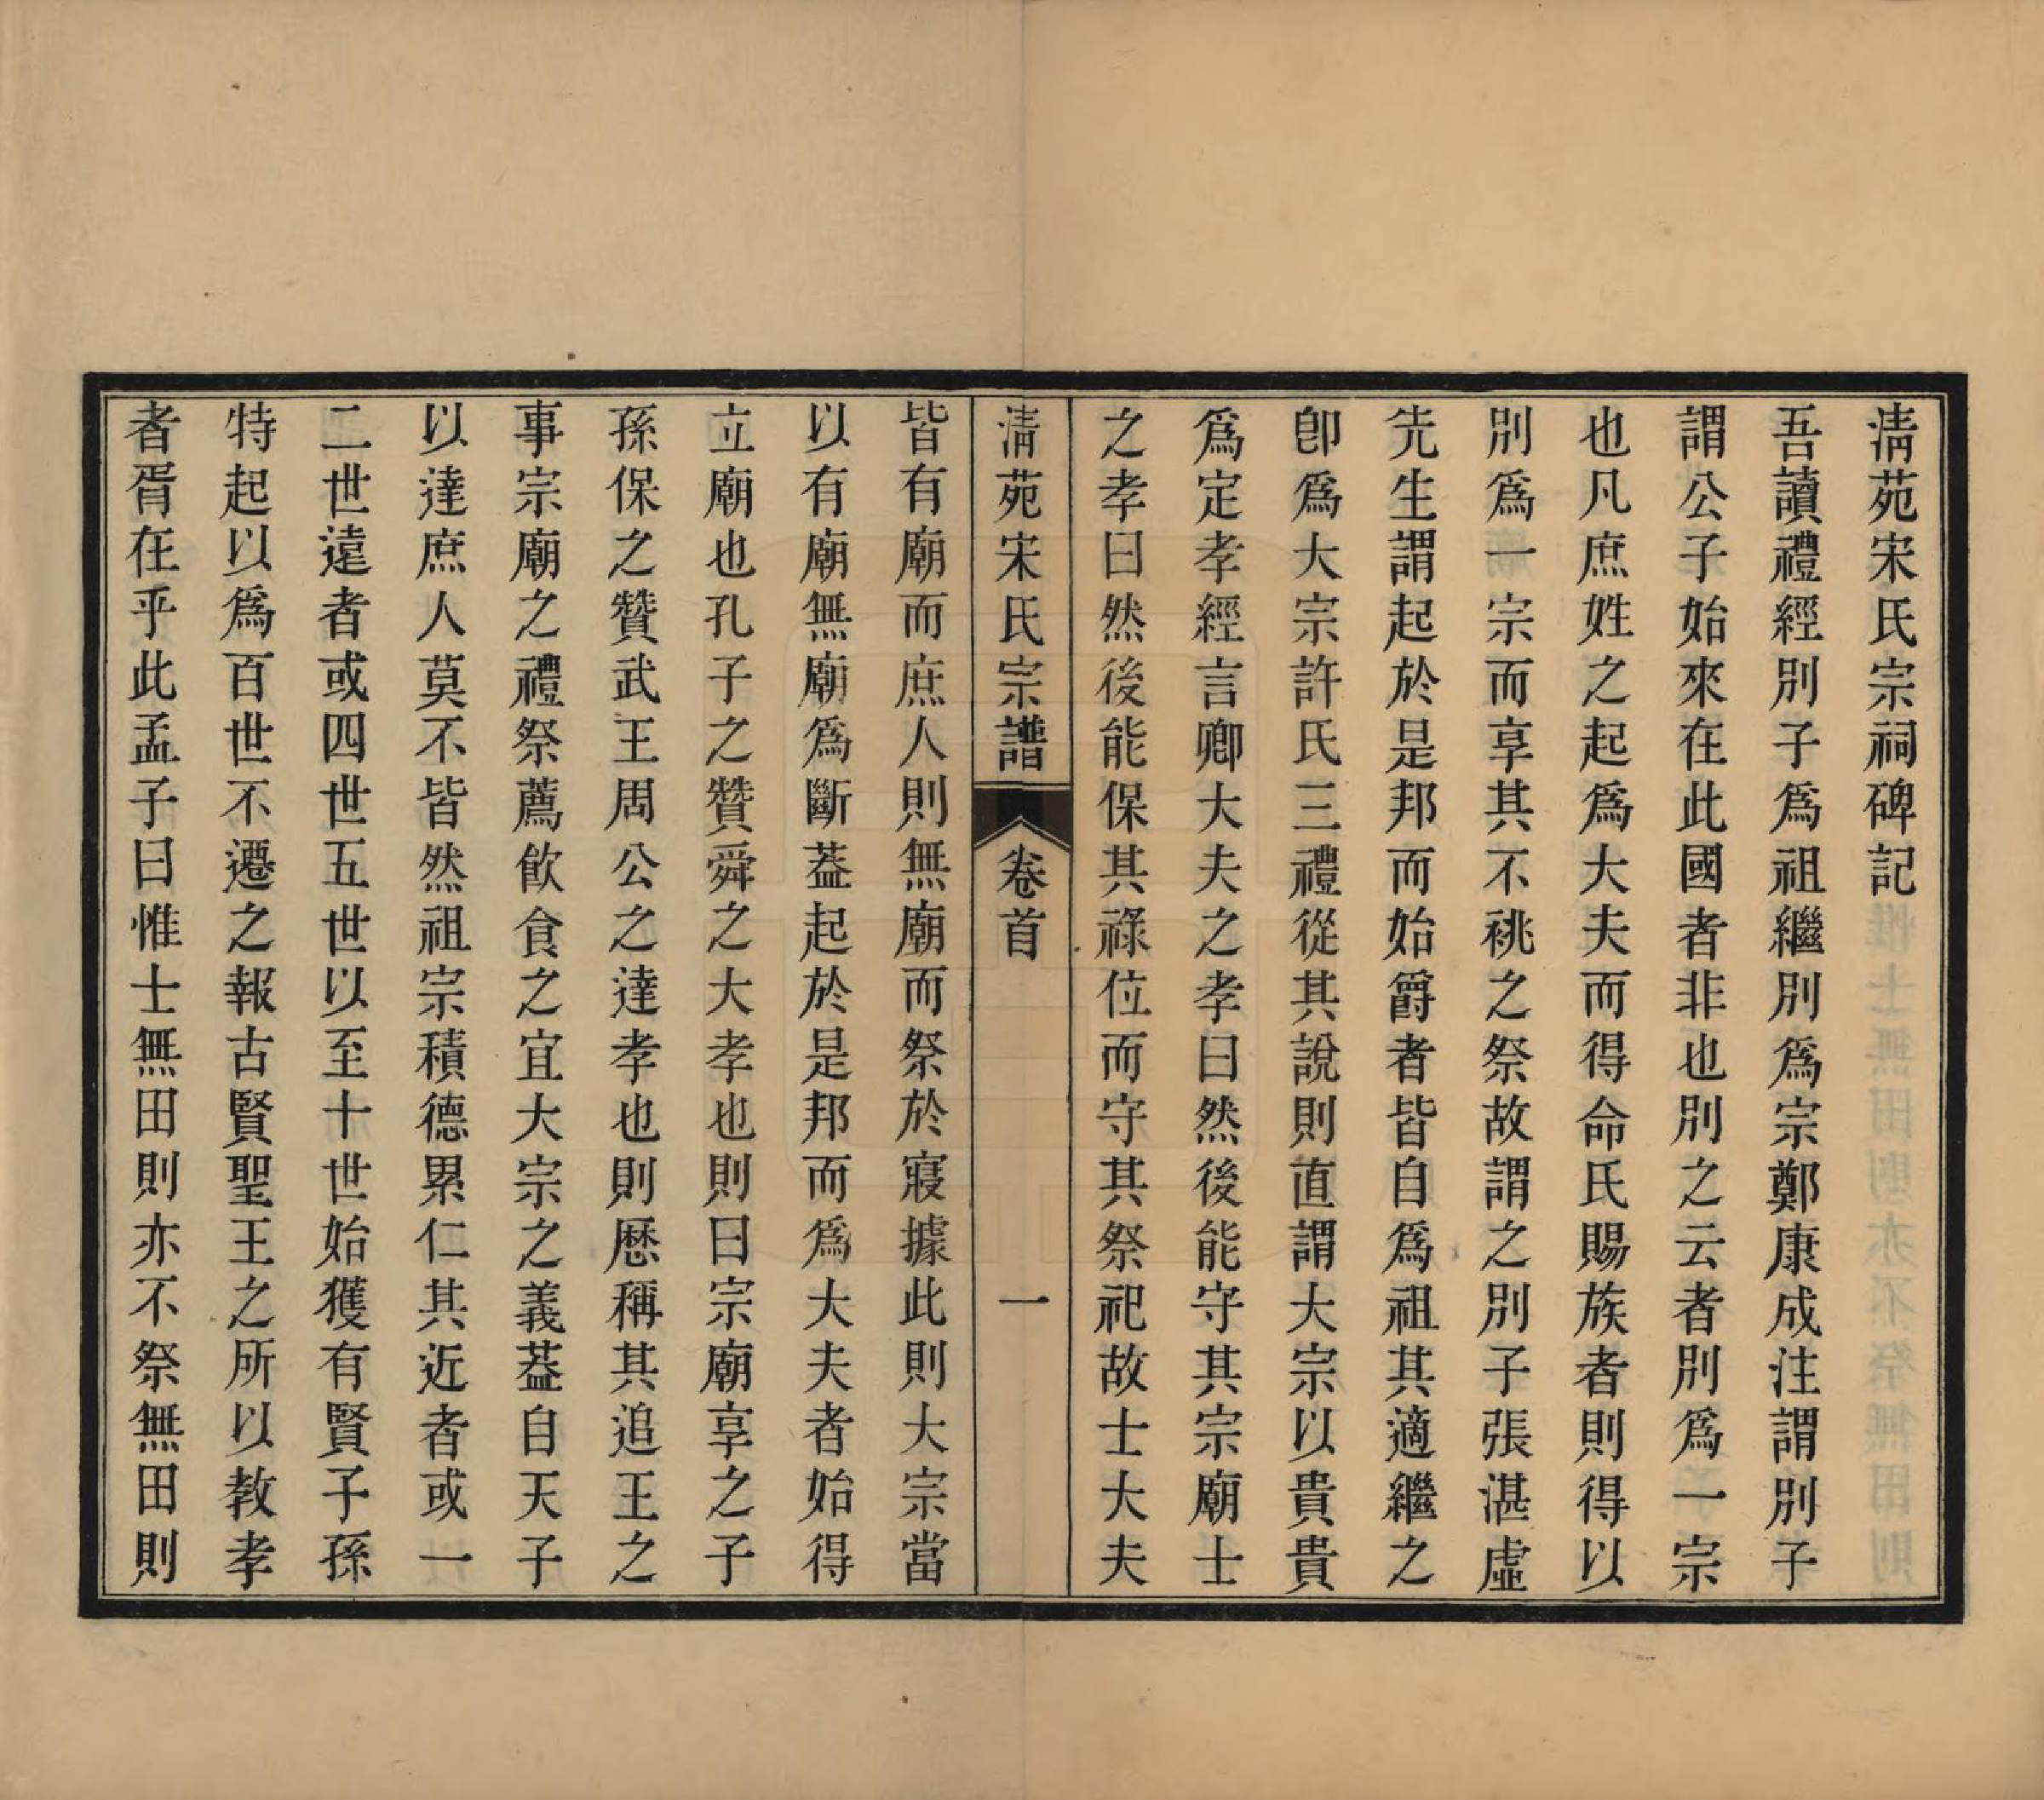 清苑宋氏宗祠碑記
吾讀禮經別子為祖繼別為宗鄭康成注謂別子
謂公子始來在此國者非也別之云者別為一宗
也凡庶姓之起為大夫而得命氏賜族者則得以
別為一宗而享其不祧之祭故謂之別子張湛虛
先生謂起於是邦而始爵者皆自為祖其適繼之
卽為大宗許氏三禮從其說則直謂大宗以貴貴
為定孝經言卿大夫之孝曰然後能守其宗廟士
之孝曰然後能保其祿位而守其祭祀故士大夫
清苑宋氏宗譜　卷首　一
皆有廟而庶人則無廟而祭於寢據此則大宗當
以有廟無廟為斷葢起於是邦而為大夫者始得
立廟也孔子之贊舜之大孝也則曰宗廟享之子
孫保之贊武王周公之達孝也則歷稱其追王之
事宗廟之禮祭薦飲食之宜大宗之義葢自天子
以達庶人莫不皆然祖宗積德累仁其近者或一
二世遠者或四世五世以至十世始獲有賢子孫
特起以為百世不遷之報古賢聖王之所以教孝
者胥在乎此孟子曰惟士無田則亦不祭無田則